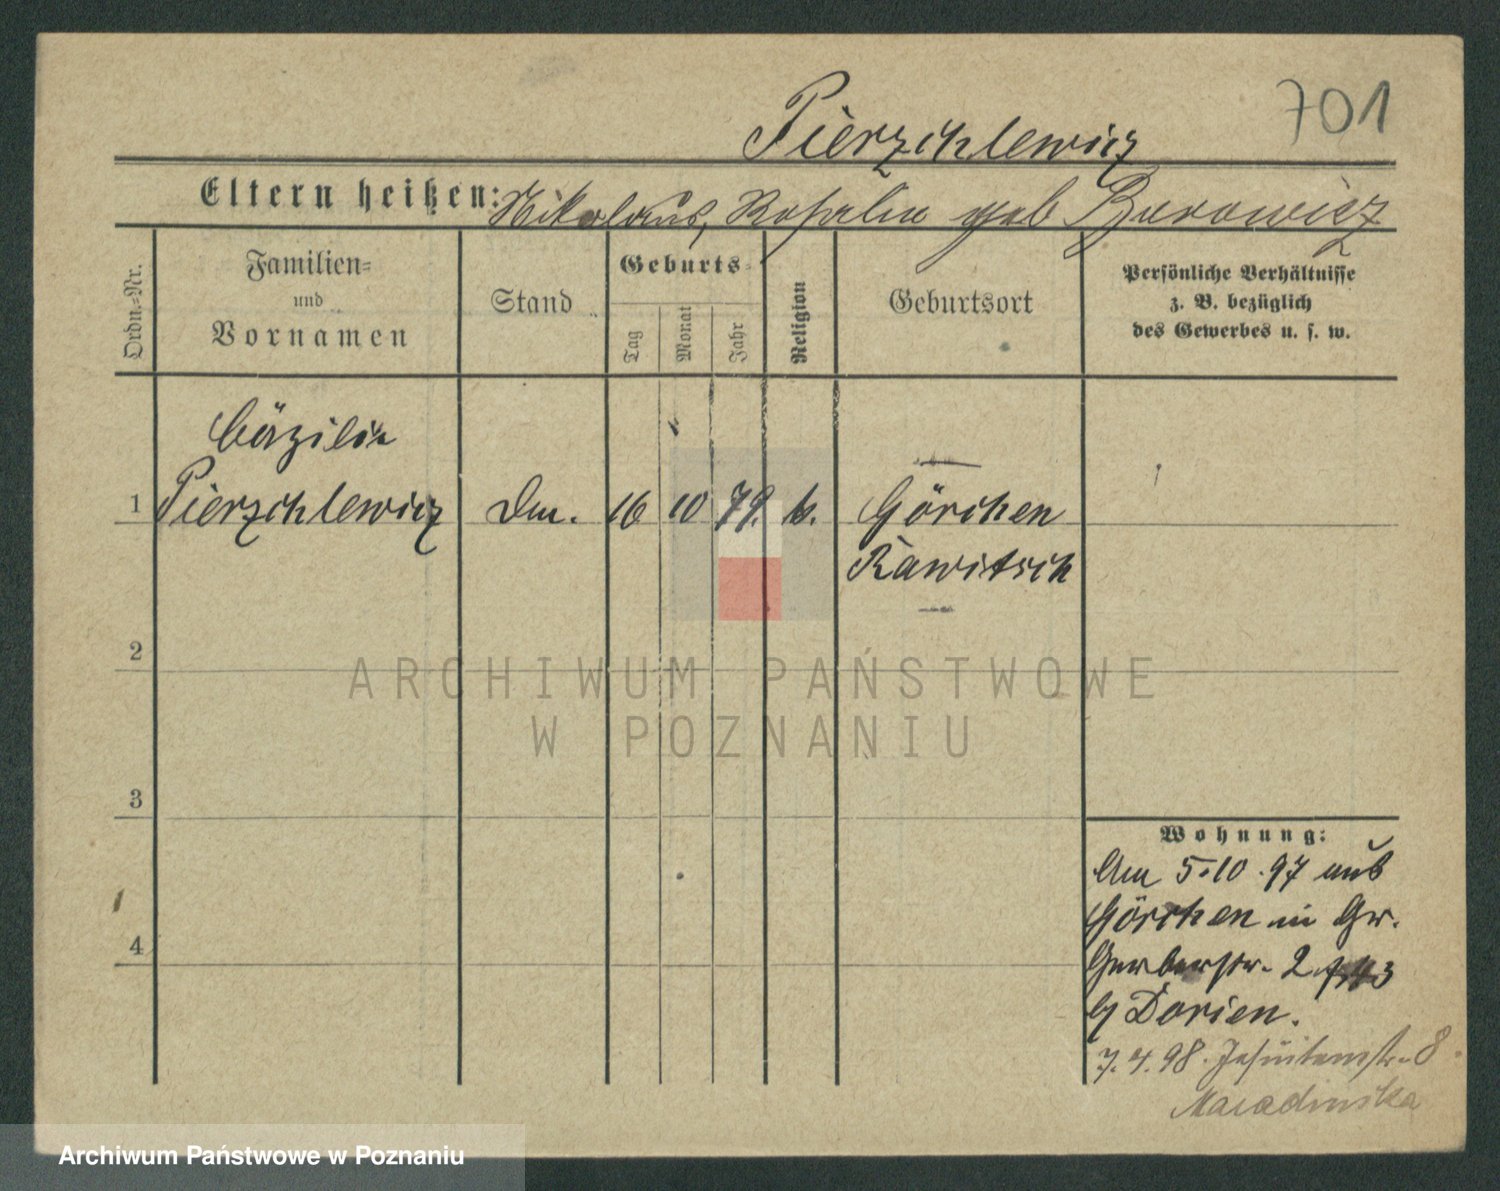 701
Pierzchlewicz
Eltern heißen: Nikolaus, Rosalia geb Burowicz
Ordn.-Nr.
Familien-
und
Vornamen
Stand
Geburts-
Tag
Monat
Jahr
Religion
Geburtsort
Persönliche Verhältnisse
z. B. bezüglich
des Gewerbes u. s. w.
Cäzilia
1 Pierzchlewicz 16 10 79. k. Görchen
Rawitsch
2
3
4
Wohnung:
Am 5.10.97 aus
Görchen in Gr.
Gerberstr. 2
Dorien.
7.4.98. Jesuitenstr. 8.
ARCHIWUM PAŃSTWOWE
W POZNANIU
Archiwum Państwowe w Poznaniu